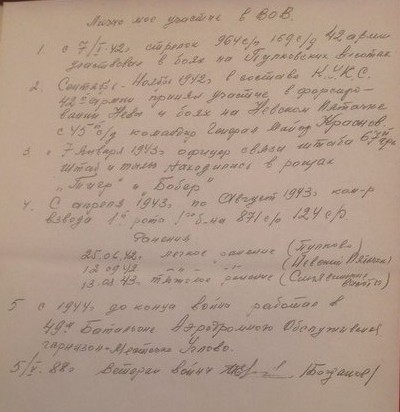 Лично мое участие в ВОВ.
1. с 7/I-42г стрелок 964 с/п 189 с/д 42 армии
участвовал в боях на Пулковских высотах
2. Сентябрь - Ноябрь 1942г в составе К.У.К.С.
42ой армии принял участие в форсиро-
вании Невы и боях на Невском Пятачке
с 45ой с/д командир Генерал Майор Краснов
3 с 7 января 1943г офицер связи штаба 67ой арм
Штаб и тылы находились в рощах
„Тигр" и „Бобер"
4. С апреля 1943г по Август 1943г ком-р
взвода 1ой роты 1го б-на 871 с/п 124 с/д.
Ранения
25.06.42г легкое ранение (Пулково)
12.09.42 (Невский Пятачек)
13.08.43г тяжелое ранение (Синявинские
5 с 1944г до конца войны работал в
49ом Батальоне Аэродромного Обслуживания
гарнизон - Местечко Углово.
5/V-88г Ветеран войны /Богданов/